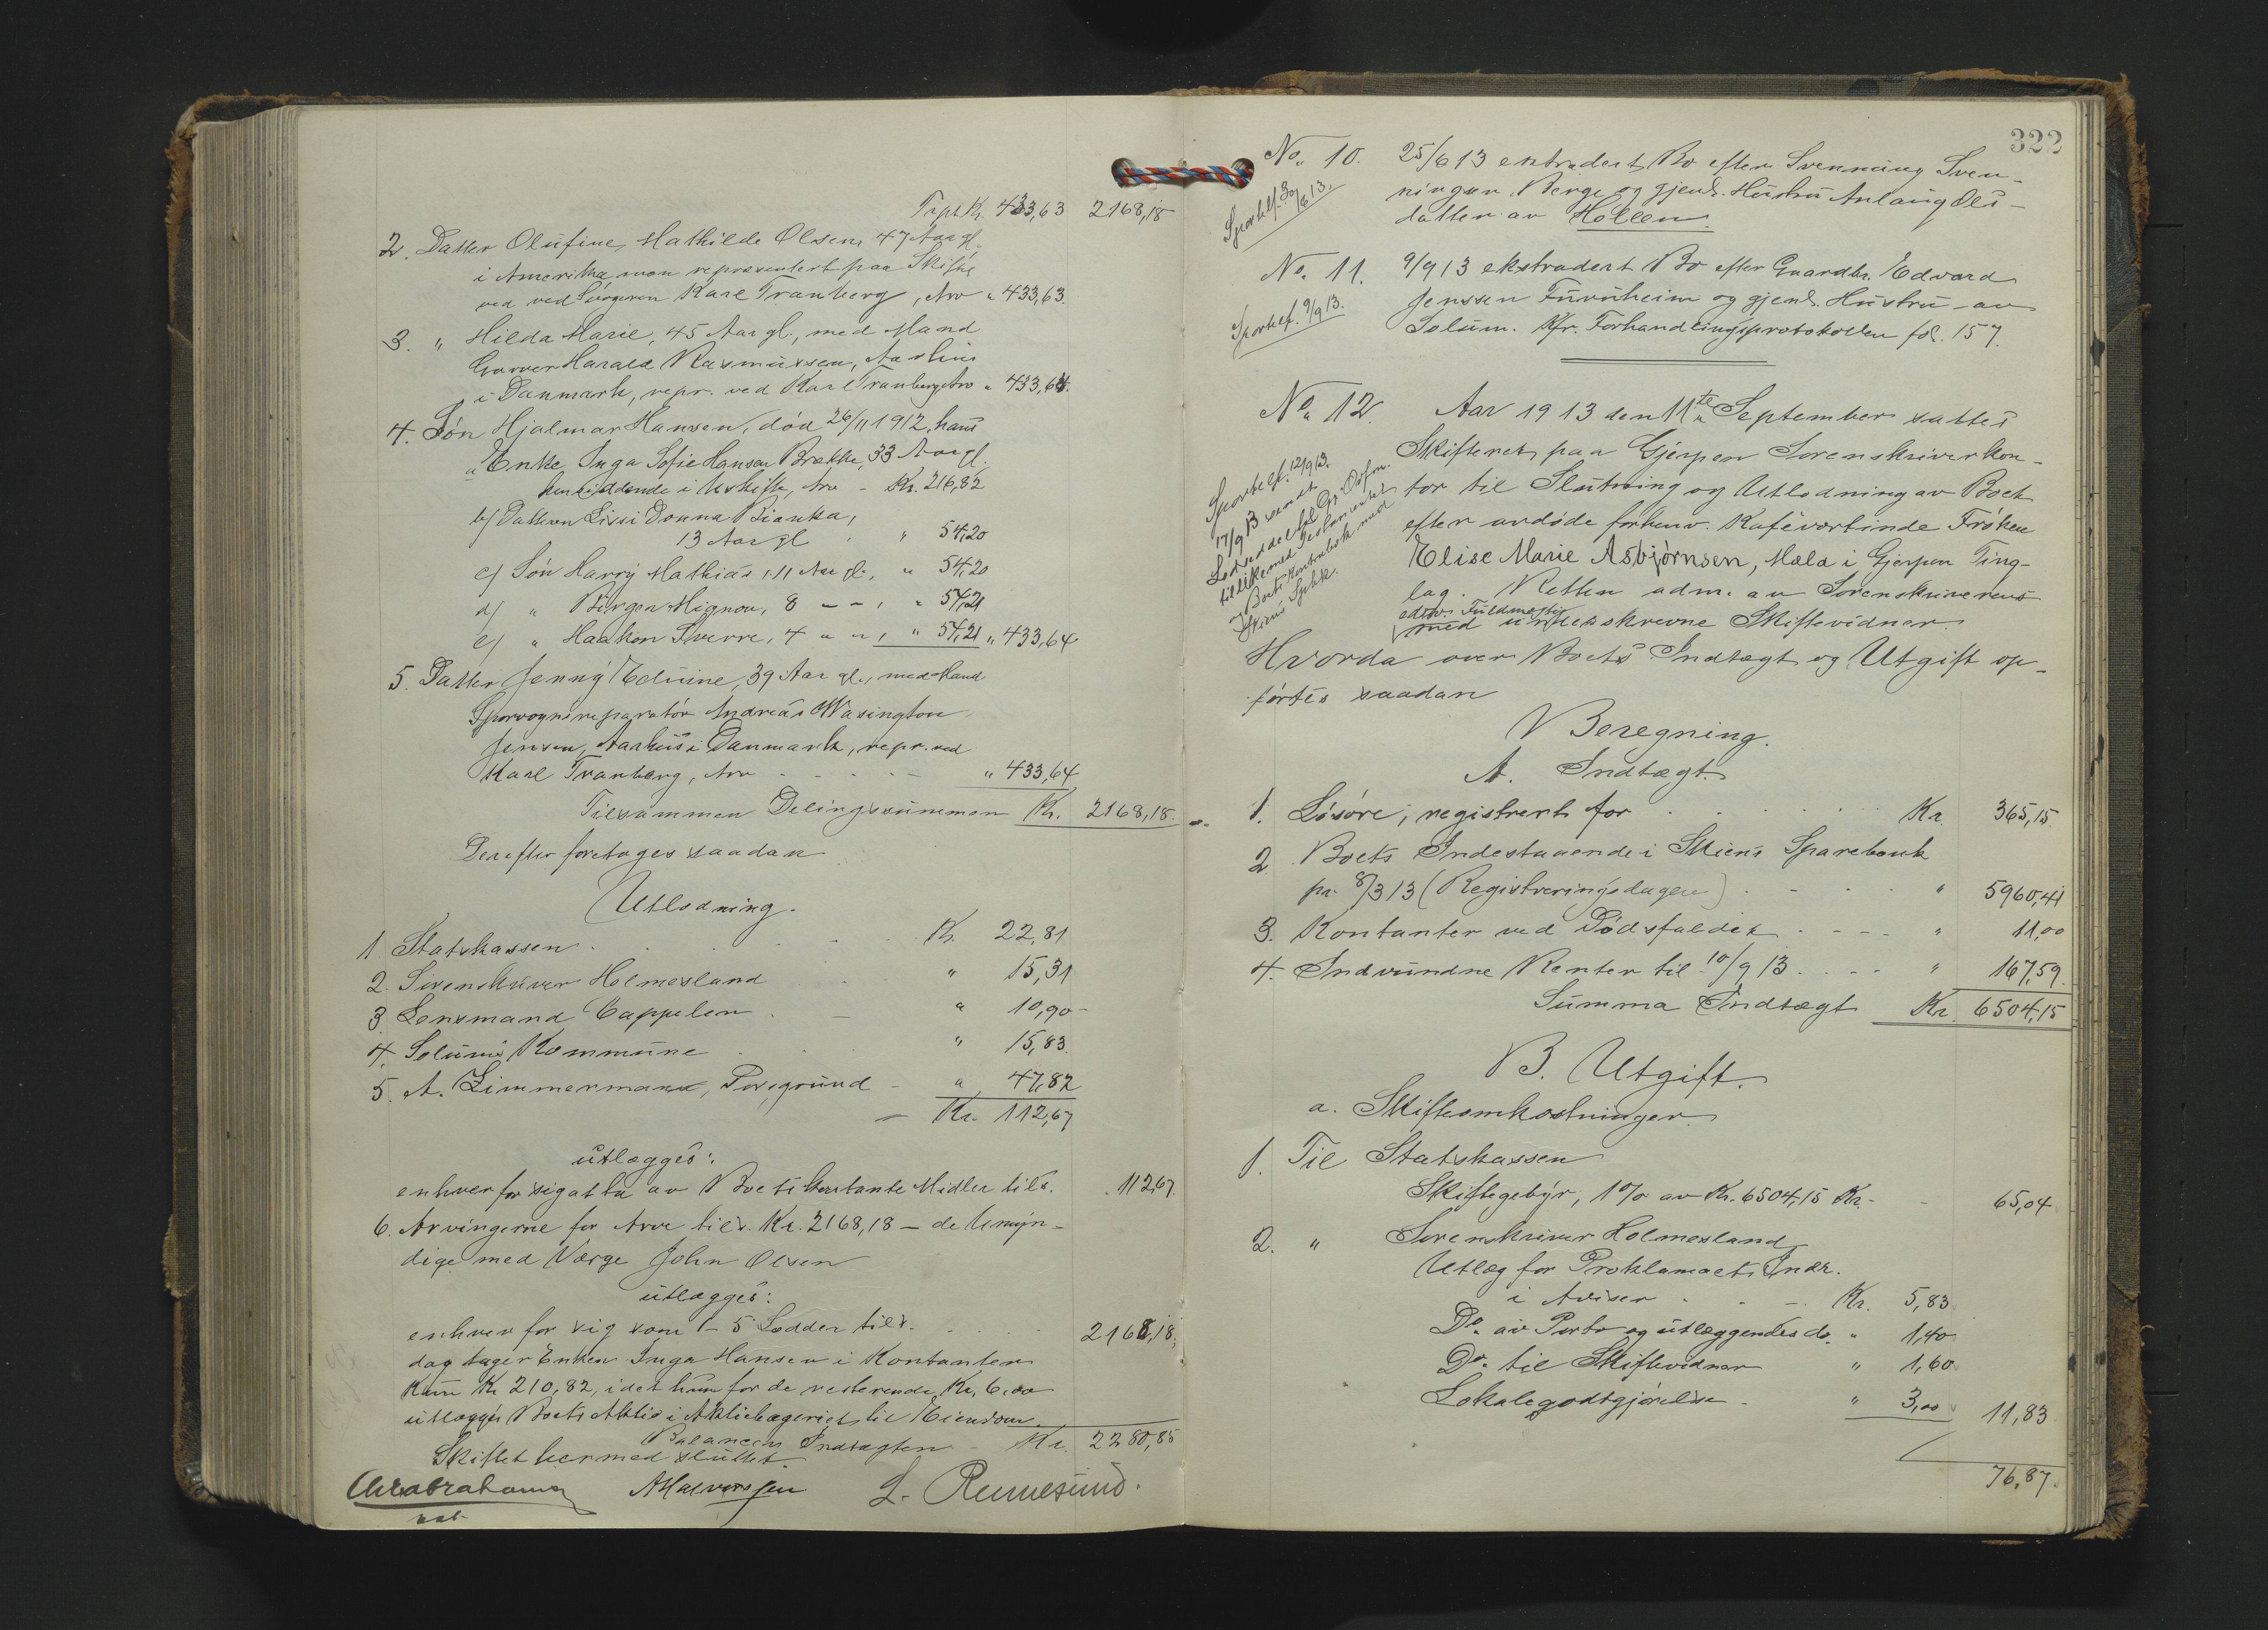 Trpt Kr. 433,63 2168,18
2. Datter Olufine Mathilde Olsen, 47 Aar gl.
i Amerika, men repræsentert paa Skifte
ved ved Svogeren Karl Tranberg, Arv " 433,63.
3. " Hilda Marie, 45 Aar gl., med Mand
Garver Harald Rasmussen, Aarhus
i Danmark, repr. ved Karl Tranberg, Arv " 433,64.
4. Søn Hjalmar Hansen, død 26/11 1912, hans
a Enke Inga Sofie Hansen Brække, 33 Aar gl.
hensiddende i Uskifte, Arv - Kr. 216,82
b/ Datteren Lissi Donna Bianka,
13 Aar gl. " 54,20
c/ Søn Harry Mathias, 11 Aar gl., " 54,20
d/ " Birger Mignon, 8 - - , " 54,21
e/ " Haakon Sverre, 4 " " , " 54,21 " 433,64
5. Datter Jenny Edvine, 39 Aar gl., med Mand
Sporvognsreparatør Andreas Wasington
Jensen, Aarhus i Danmark, repr. ved
Karl Tranberg, Arv - - - - " 433,64
Tilsammen Delingssummen Kr. 2168,18.
Derefter foretages saadan
Utlodning.
1. Statskassen Kr. 22,81
2. Sorenskriver Holmesland " 15,31
3. Lensmand Cappelen " 10,90
4. Solums Kommune " 15,83
5. A. Zimmermann, Porsgrund - " 47,82
Kr. 112,67
utlægges:
enhver for sig at ta av Boets kontante Midler tils. 112,67.
6. Arvingerne for Arv tils. Kr. 2168,18 - de Umyn-
dige med Værge John Olsen
utlægges:
enhver for sig som 1-5 Lodder tils. 2168,18.
dog tager Enken Inga Hansen i Kontanter
kun Kr 210,82, idet hun for de resterende Kr. 6,00
utlægges Boets Aktie i Aktiebageriet til Eiendom.
Balancerer Indtægten - Kr. 2280,85
Skiftet hermed sluttet.
Chr Abrahamsen A Halvorsen L. Rennesund.
322
No. 10. 25/6 13 extradert Bo efter Svenning Sven-
Sportelf. 30/6 13. ningsen Berge og gjenl. Hustru Anlaug Ols-
datter av Hollen.
No. 11. 9/9 13 ekstradert Bo efter Gaardbr. Edvard
Sportelf. 9/9 13. Jenssen Furuheim og gjenl. Hustru av
Solum. Kfr. Forhandlingsprotokollen fol. 157.
No. 12. Aar 1913 den 11te September sattes
Skifteret paa Gjerpen Sorenskriverkon-
tor til Slutning og Utlodning av Boet
efter avdøde forhenv. Kaféværtinde Frøken
Elise Marie Asbjørnsen, Mæla i Gjerpen Ting-
lag. Retten adm. av Sorenskriverens
edsv. Fuldmægtig
med underskrevne Skiftevidner.
Sportelf. 12/9 13.
17/9 13 sendt
Lodseddel til
tillikemed Testamentet
og Boets Kontrabok med
Skiens Spbk.
Hvorda over Boets Indtægt og Utgift op-
førtes saadan
Beregning.
A. Indtægt.
1. Løsøre, registrert for Kr. 365,15.
2. Boets Indestaaende i Skiens Sparebank
pr. 8/3 13 (Registreringsdagen) " 5960,41
3. Kontanter ved Dødsfaldet " 11,00
4. Indvundne Renter til 10/9 13 " 167,59.
Summa Indtægt Kr. 6504,15
B. Utgift.
a. Skifteomkostninger.
1. Til Statskassen
Skiftegebyr, 1% av Kr. 6504,15 Kr. 65,04
2. " Sorenskriver Holmesland
Utlæg for Proklamaets Indr.
i Aviser - - Kr. 5,83
Do. av Porto og utlæggendes do. " 1,40
Do. til Skiftevidner " 1,60
Lokalegodtgjørelse - " 3,00 11,83
76,87.